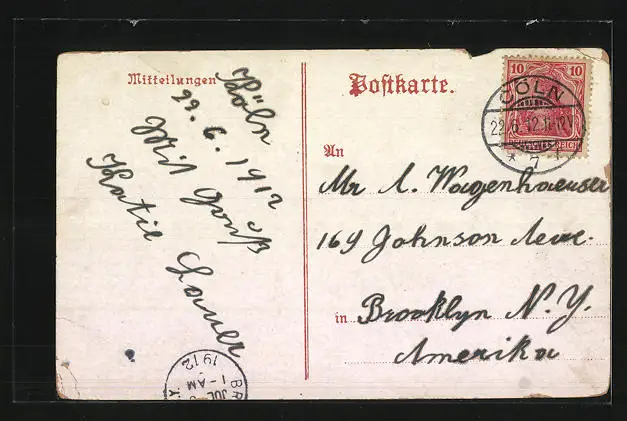 Mitteilungen
Postkarte.
Köln
29. 6. 1912
Mit Gruß
Katie Lauer
10 10
DEUTSCHES REICH
CÖLN
29.6.12.11-12V
* 1
7
An
Mr A. Wagenhaeuser
169 Johnson Ave.
in Brooklyn N. Y.
Amerika
BR
JUL
1-AM
1912
Y